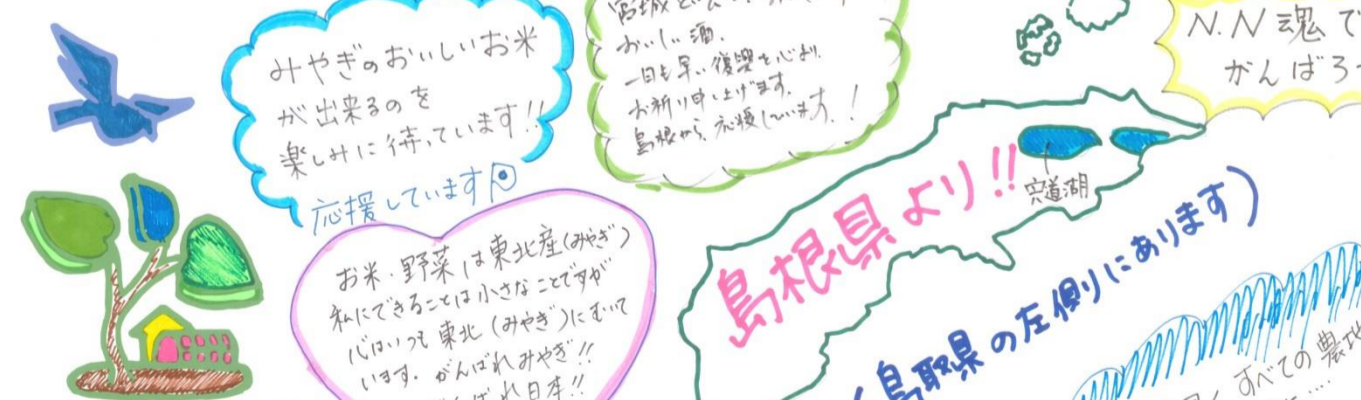 みやぎのおいしいお米
が出来るのを
楽しみに待っています!!
応援しています
おいしい酒、
一日も早い復興を心より、
お祈り申し上げます。
島根から、応援しています!
N.N魂で
がんばろー
お米・野菜は東北産(みやぎ)
私にできることは小さなことですが
心はいつも東北(みやぎ)にむいて
います。がんばれみやぎ!!
がんばれ日本!!
島根県より!!
宍道湖
(鳥取県の左側りにあります)
すべての農地